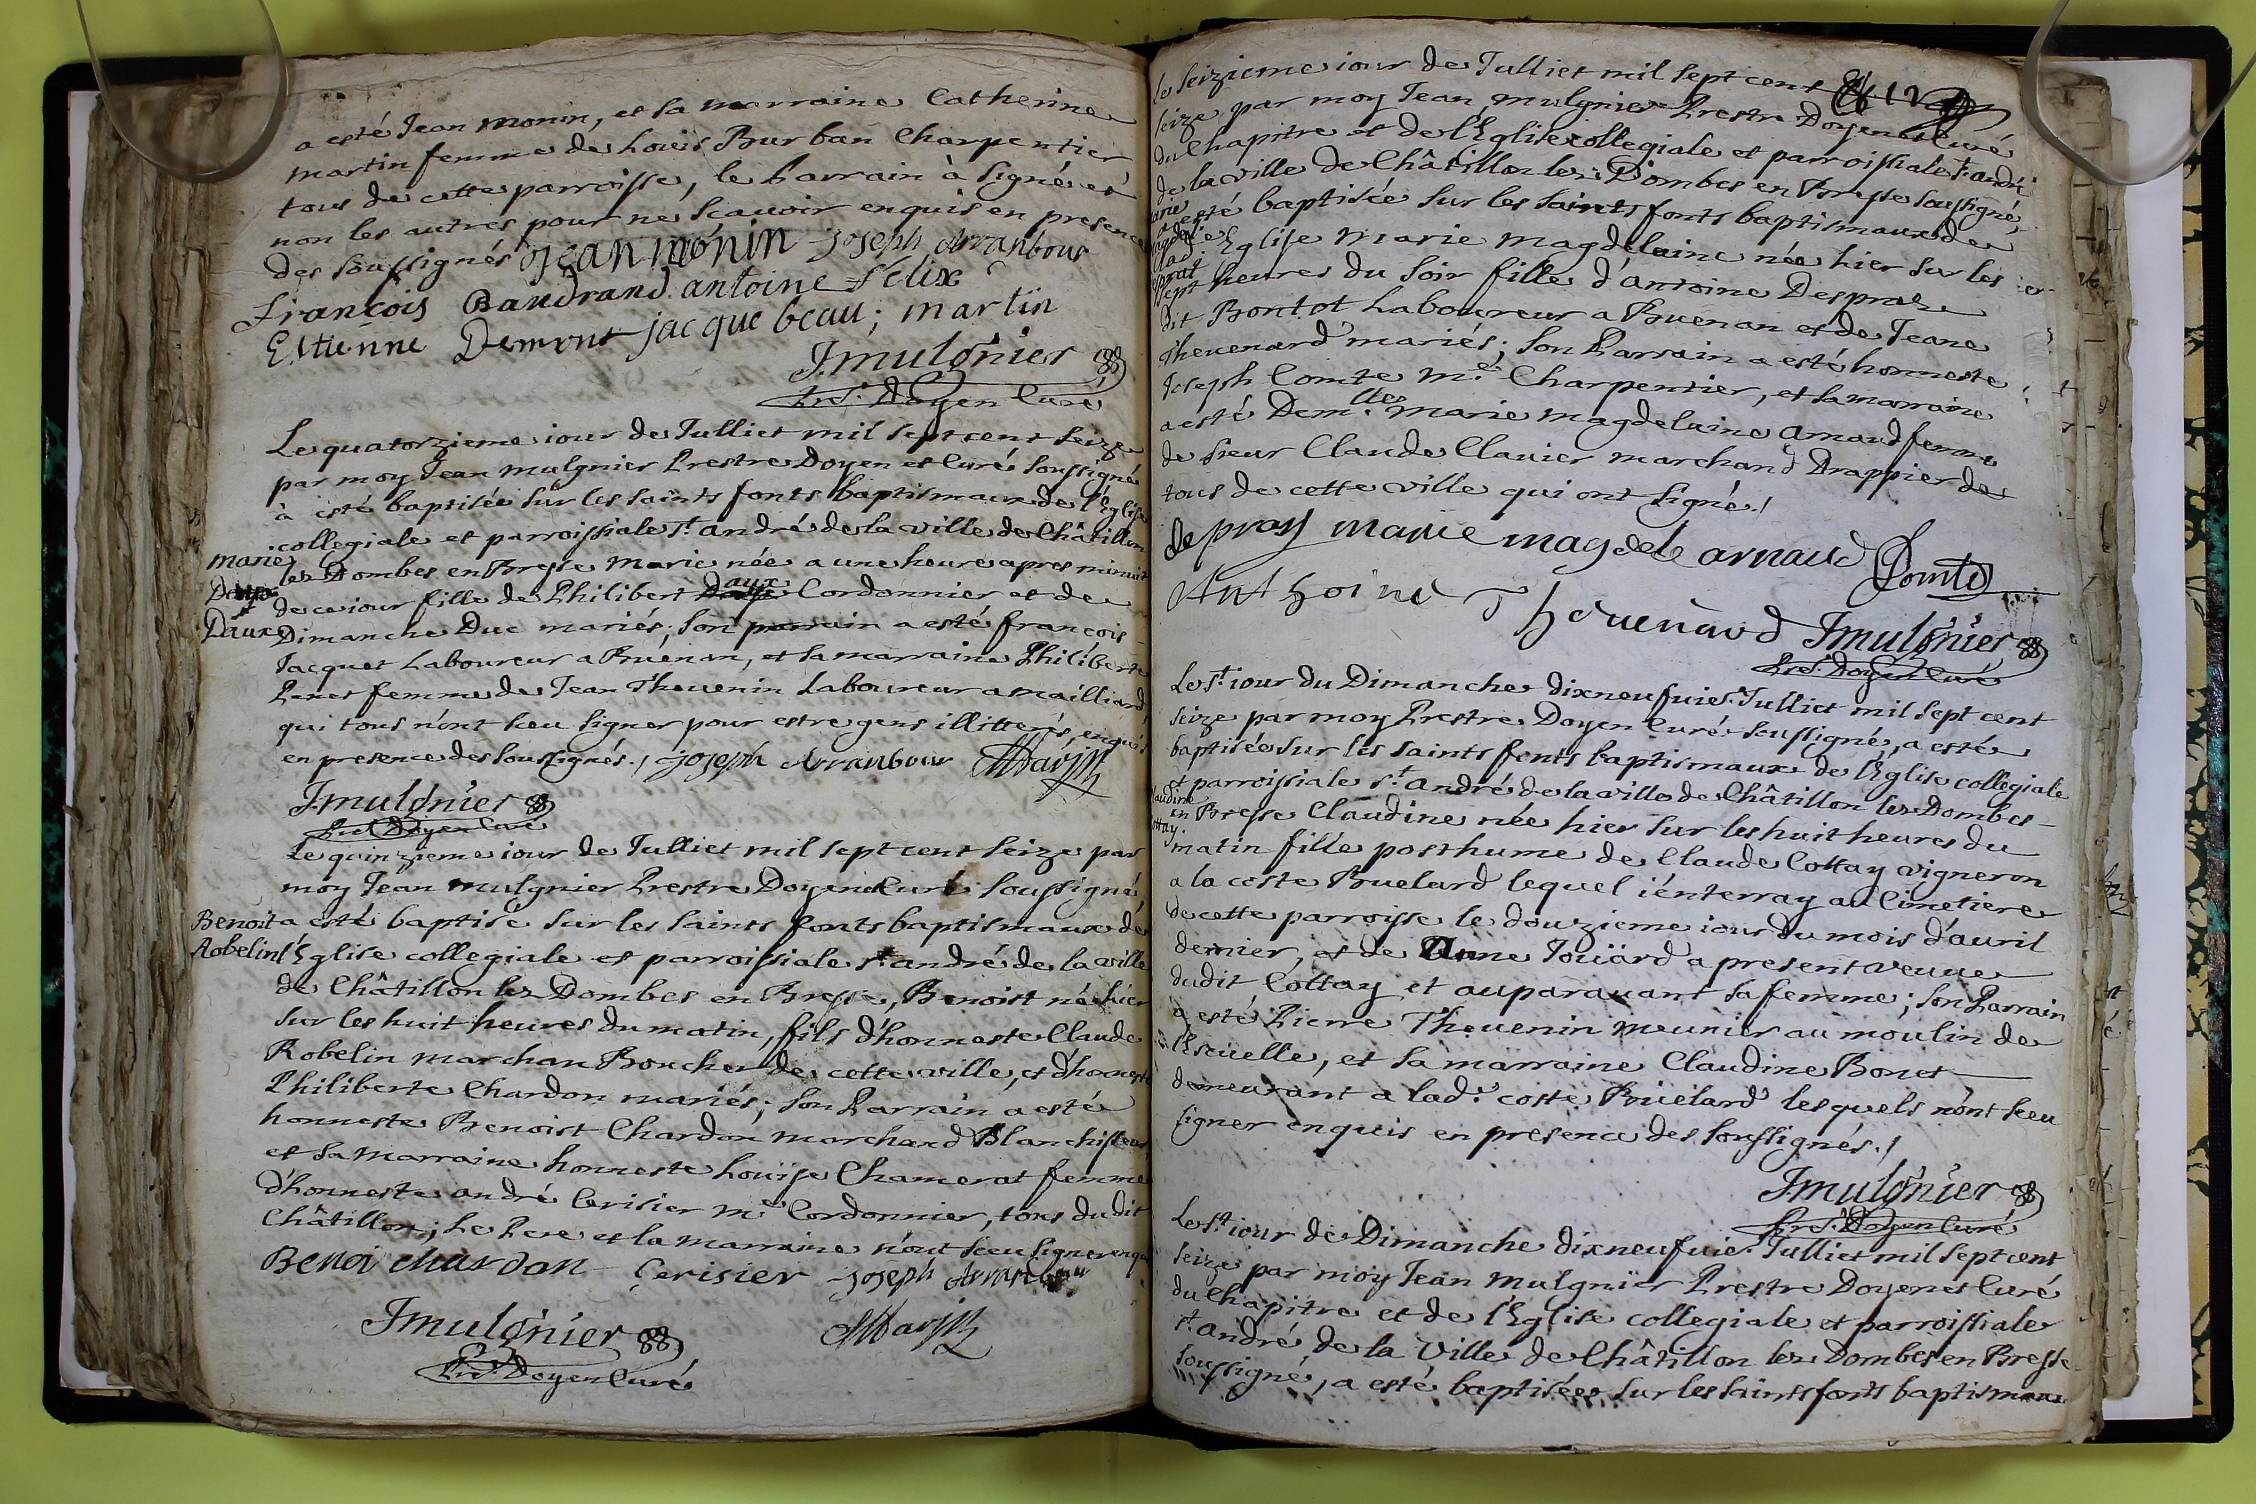 a esté Jean monin, et sa marraine Catherine
martin femme de Loüis Burban Charpentier
tous de cette parroisse, le Parrain à signé et
non les autres pour ne sçauoir enquis en presence
des soussignés Jean monin Joseph Arranbour
François Baudrand antoine Felix
Estienne Demont jacque beau; martin
J. mulgnier
Pre. Doyen Curé
Le quatorzieme iour de Julliet mil sept cent seize
par moy Jean mulgnier Prestre Doyen et Curé soussigné
à esté baptisée sur les saints fonts baptismaux de l'Eglise
collegiale et parroissiale st. andré de la ville de Châtillon
marie les Dombes en Bresse marie née a une heure apres minuit
de ce iour fille de Philibert Daux Cordonnier et de
Daux Dimanche Duc mariés; son parrain a esté françois
Jacquet Laboureur a Buénan, et sa marraine Philiberte
Penet femme de Jean Theuenin Laboureur a mailliard
qui tous n'ont sceu signer pour estre gens illitterés, enquis
en presence des soussignés./ Joseph Arranbour
J. mulgnier
Pre. Doyen Curé
Le quinzieme iour de Julliet mil sept cent seize par
moy Jean mulgnier Prestre Doyen et Curé soussigné,
Benoit a esté baptisé sur les saints fonts baptismaux de
Robelin l'Eglise collegiale et parroissiale st. andré de la ville
de Châtillon les Dombes en Bresse, Benoist né hier
sur les huit heures du matin, fils d'honneste Claude
Robelin marchan Boucher de cette ville, et d'honneste
Philiberte Chardon mariés; son Parrain a esté
honneste Benoist Chardon marchand Blanchisseur
et sa marraine honneste Loüise Chamerat femme
d'honneste andré Cerisier me. Cordonnier, tous dudit
Châtillon; Le Pere et la marraine n'ont sceu signer enquis
Benoi chardon Cerisier Joseph Arranbour
J mulgnier
Pre. Doyen Curé
Le seizieme iour de Julliet mil sept cent
seize par moy Jean mulgnier Prestre Doyen et Curé
du Chapitre et de l'Eglise collegiale et parroissiale st. andré
de la ville de Châtillon les Dombes en Bresse soussigné,
a esté baptisée sur les saints fonts baptismaux de
lad. Eglise Marie Magdelaine née hier sur les
sept heures du soir fille d'antoine Despraz
dit Bontot Laboureur a Buenan et de Jeane
Theuenard mariés; son Parrain a esté honneste
Joseph Comte me. Charpentier, et sa marraine
a esté Demlle. Marie Magdelaine Arnaud femme
de sieur Claude Clauier marchand Drappier de
tous de cette ville qui ont signé./
depray marie magdele arnaud Comte
Anthoine Theuenard J mulgnier
Pre. Doyen Curé
Le st. iour du Dimanche dixneufuie. Julliet mil sept cent
seize par moy Prestre Doyen Curé soussigné, a esté
baptisée sur les saints fonts baptismaux de l'Eglise collegiale
et parroissiale st. André de la ville de Châtillon les Dombes
en Bresse Claudine née hier sur les huit heures du
matin fille posthume de Claude Cottay vigneron
a la coste Buelard lequel i'enterray au Cimetiere
de cette parroisse le douzieme iour du mois d'auril
dernier, et de Anne Joüard a present veuue
dudit Cottay et auparauant sa femme; son Parrain
a esté Pierre Theuenin meunier au moulin de
l'Escüelle, et sa marraine Claudine Bonet
demeurant a lad. coste Buëlard lesquels n'ont sceu
signer enquis en presence des soussignés./
J mulgnier
Pre. Doyen Curé
Le st. iour de Dimanche dixneufuie. Julliet mil sept cent
seize par moy Jean Mulgnier Prestre Doyen et Curé
du Chapitre et de l'Eglise collegiale et parroissiale
st. andré de la Ville de Châtillon les Dombes en Bresse
soussigné, a esté baptisée sur les saints fonts baptismaux